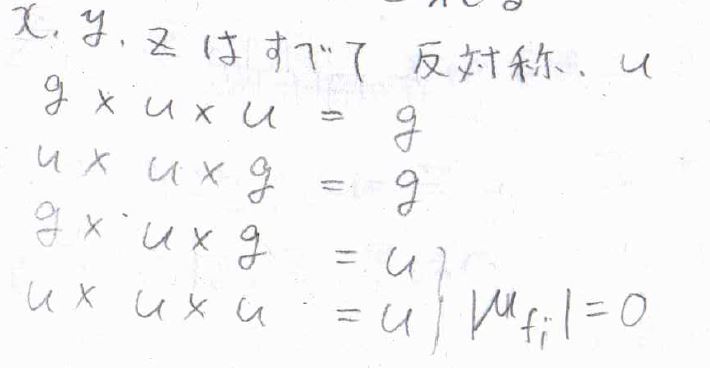 x, y, z はすべて 反対称. u
g × u × u = g
u × u × g = g
g × u × g = u
u × u × u = u } |μfi| = 0